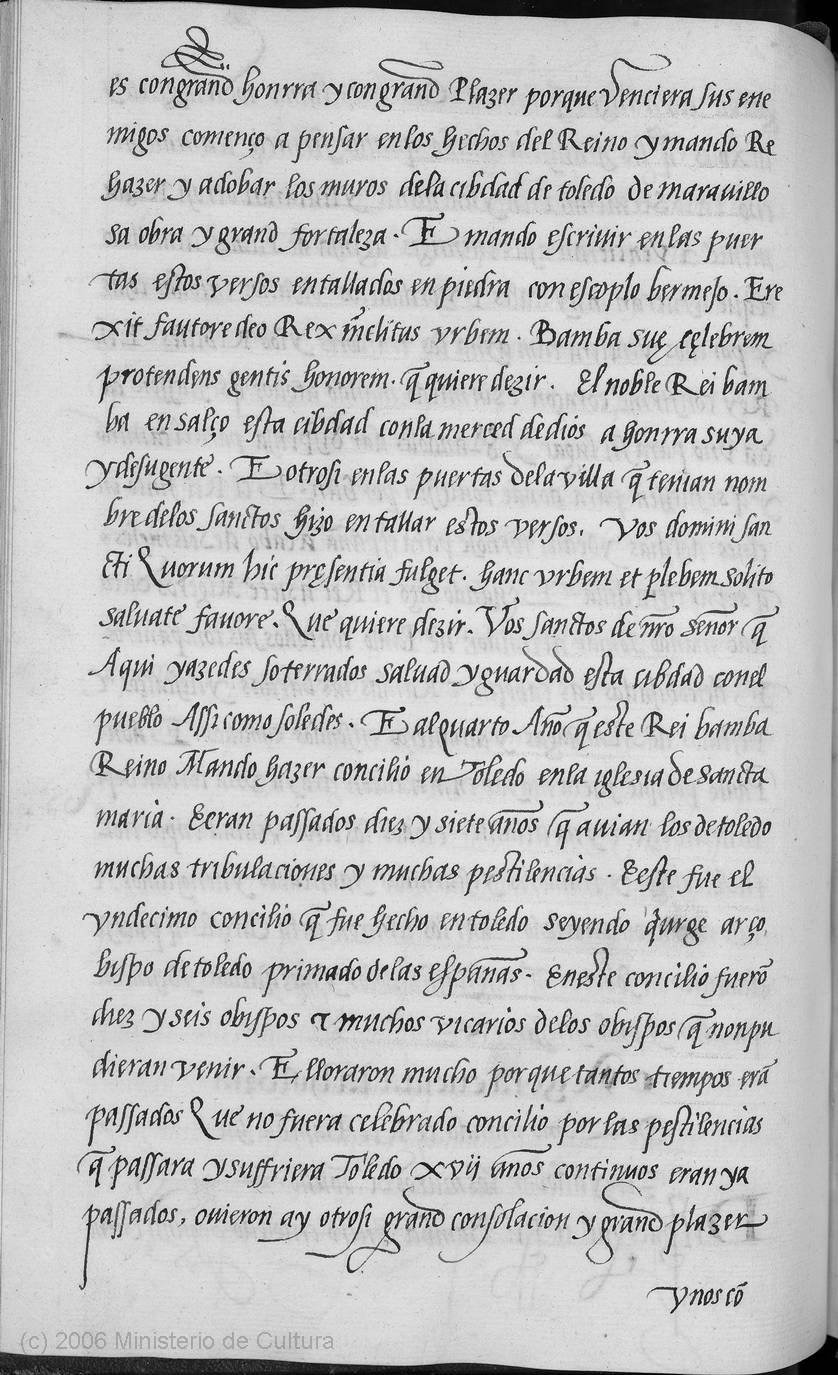 es con grand honrra y con grand Plazer porque venciera sus ene
migos començo a pensar en los hechos del Reino y mando Re
hazer y adobar los muros dela cibdad de toledo de maravillo
sa obra y grand fortaleza. E mando escrivir en las puer
tas estos versos entallados en piedra con escoplo bermejo. Ere
xit fautore deo Rex inclitus vrbem. Bamba suę cęlebrem
protendens gentis honorem. q̃ quiere dezir. El noble Rei bam
ba ensalço esta cibdad con la merced de dios a honrra suya
y de su gente. E otrosi en las puertas de la villa q̃ tenian nom
bre de los sanctos hizo entallar estos versos. Vos domini san
cti Quorum hic pręsentia fulget. hanc vrbem et plebem solito
saluate fauore. Que quiere dezir. Vos sanctos de nr̃o señor q̃
Aqui yazedes soterrados saluad y guardad esta cibdad con el
pueblo Assi como soledes. E al Quarto Año q̃ este Rei bamba
Reino Mando hazer concilio en Toledo en la iglesia de Sancta
maria. E eran passados diez y siete años q̃ auian los de toledo
muchas tribulaciones y muchas pestilencias. E este fue el
vndecimo concilio q̃ fue hecho en toledo seyendo q̃urge arço
bispo de toledo primado de las españas. En este concilio fuerõ
diez y seis obispos & muchos vicarios de los obispos q̃ non pu
dieran venir. E lloraron mucho porque tantos tiempos erã
passados Que no fuera celebrado concilio por las pestilencias
q̃ passara y suffriera Toledo xvij años continuos eran ya
passados, ouieron ay otrosi grand consolacion y grand plazer
vnos cõ
(c) 2006 Ministerio de Cultura